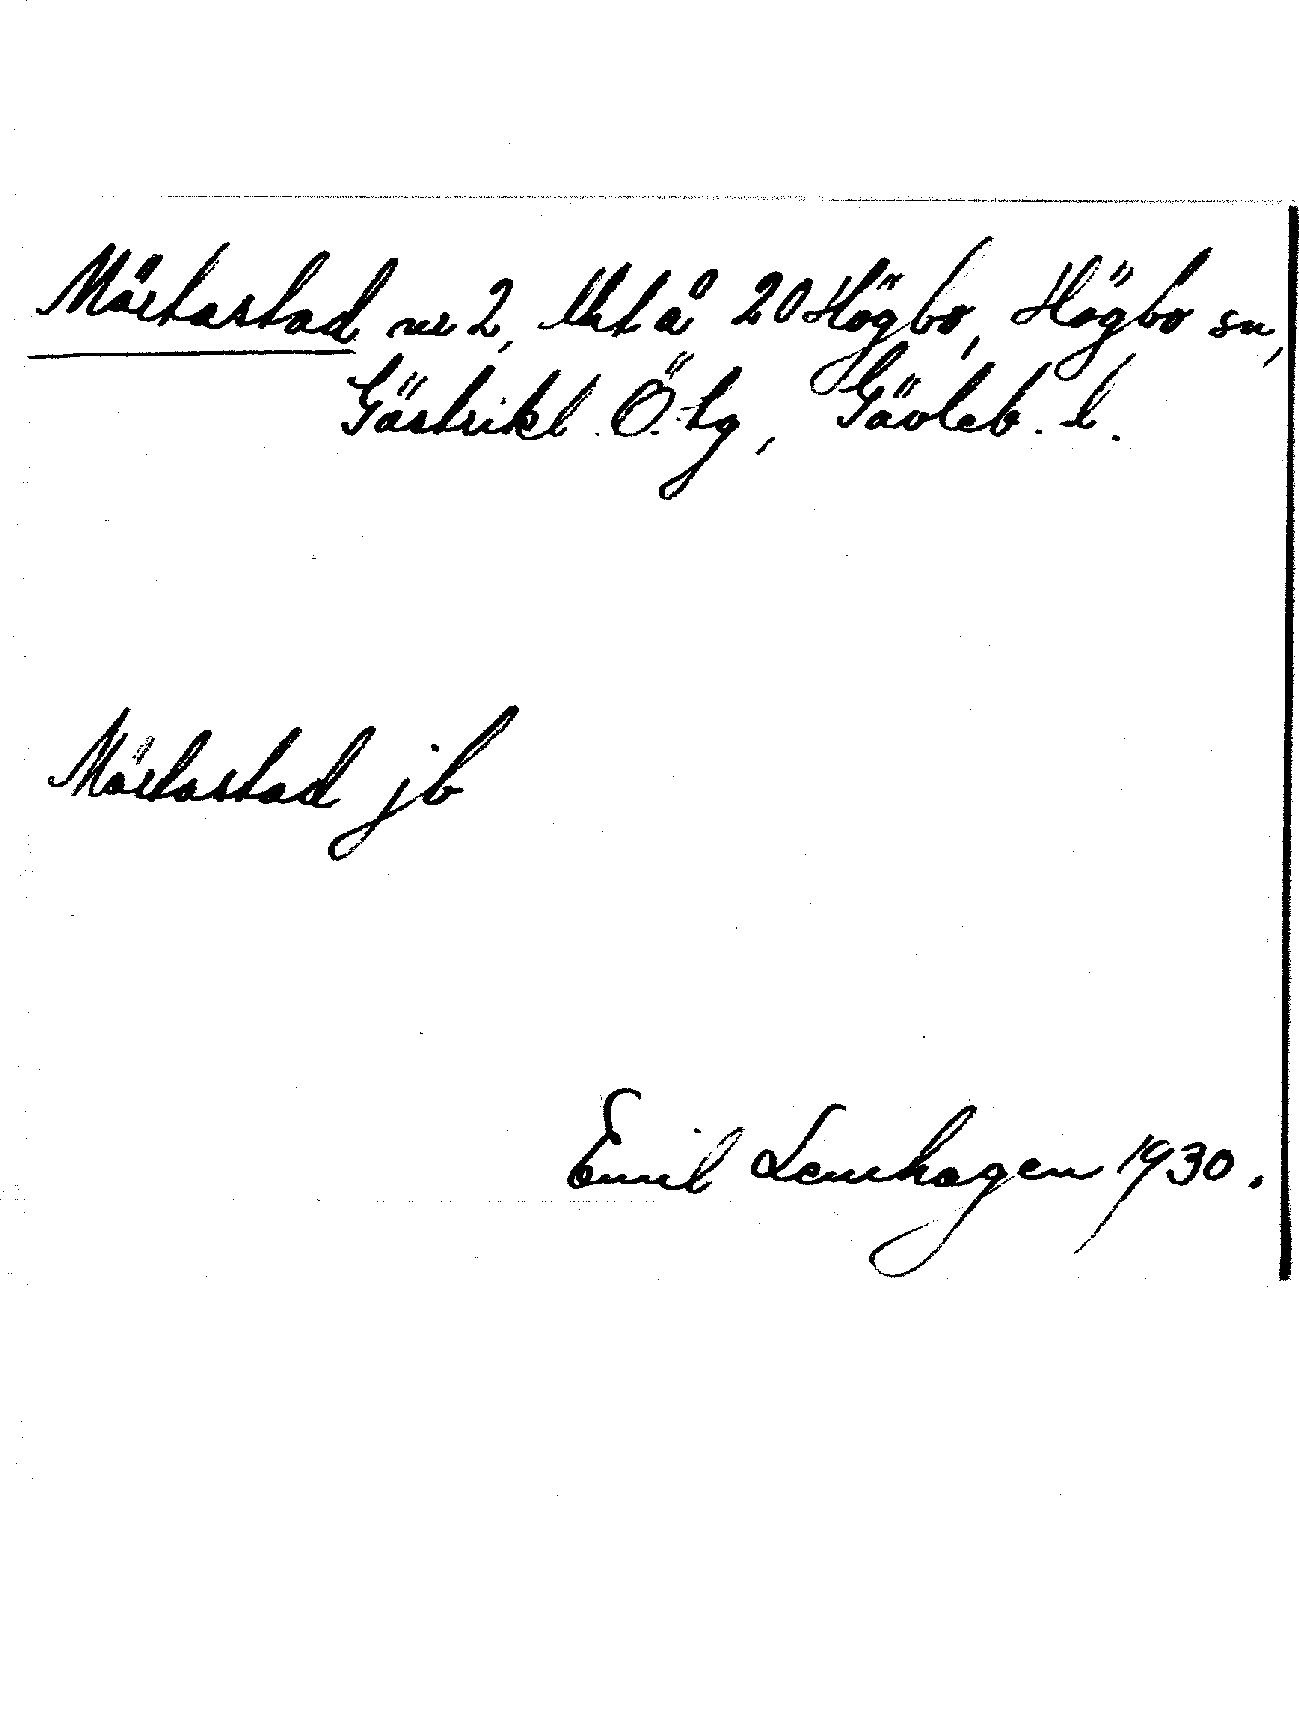 Märtastad nr 2, Utl å 20 Högbo, Högbo sn,
Gästrikl. Ö. tg, Gävleb. l.
Märtastad jb
Emil Lenhagen 1930.